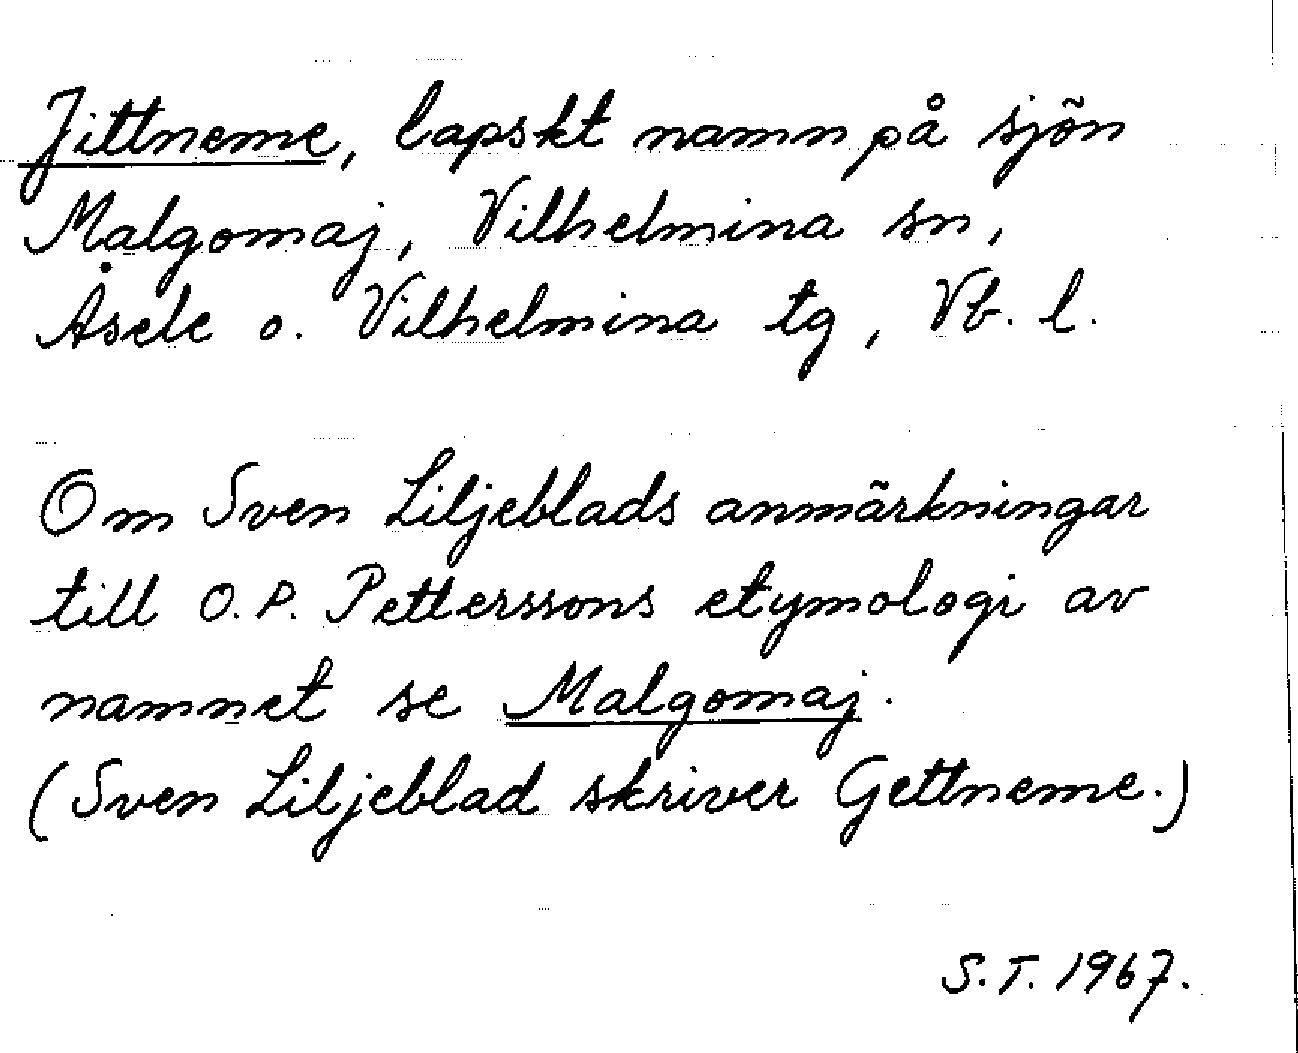 Jittneme, lapskt namn på sjön
Malgomaj, Vilhelmina sn,
Åsele o. Vilhelmina tg, Vb. l.
Om Sven Liljeblads anmärkningar
till O. P. Petterssons etymologi av
namnet se Malgomaj.
(Sven Liljeblad skriver Gettneme.)
S.T. 1967.